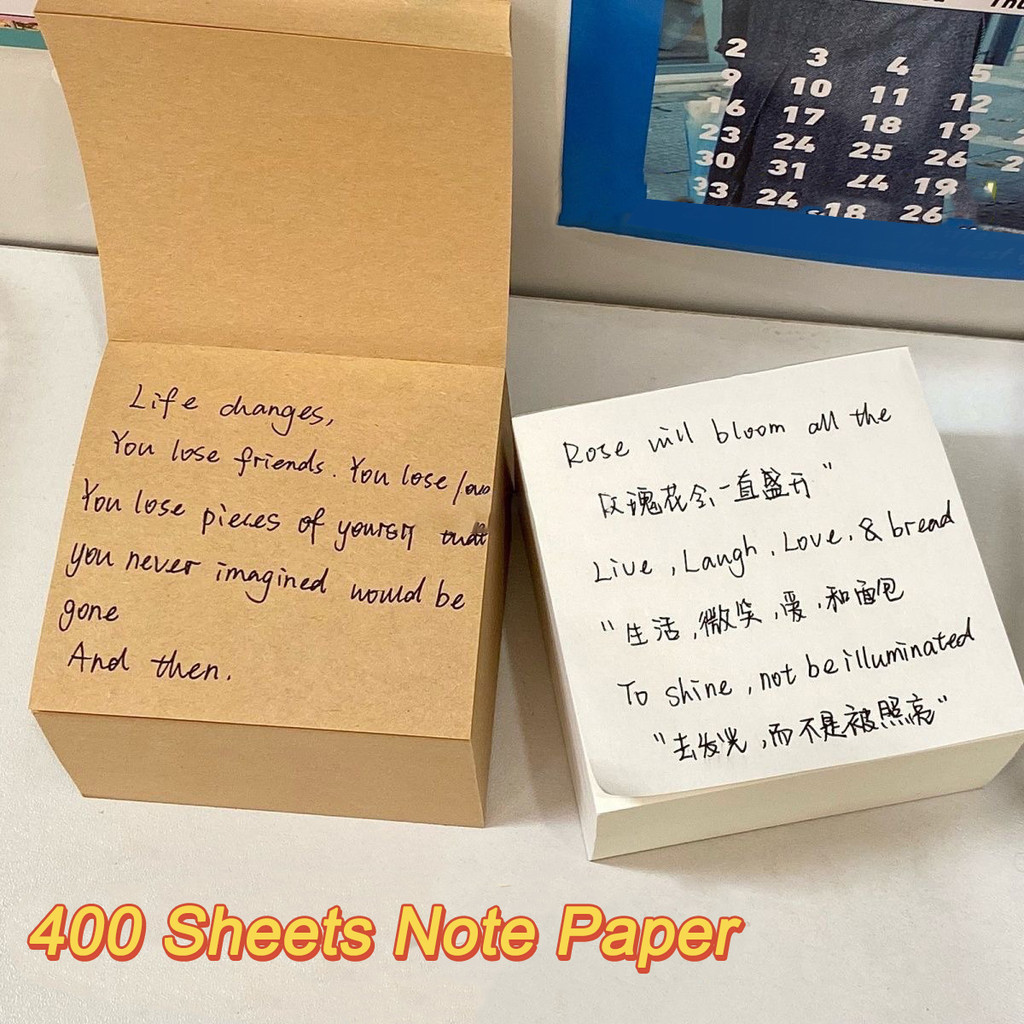 2 3 4 5
9 10 11 12
16 17 18 19
23 24 25 26
30 31 24 19
23 24 18 26
Life changes,
You lose friends. You lose love
You lose pieces of yourself that
you never imagined would be
gone
And then.
Rose will bloom all the
玫瑰花会一直盛开"
Live, Laugh, Love, & bread
"生活,微笑,爱,和面包
To shine, not be illuminated
"去发光,而不是被照亮"
400 Sheets Note Paper